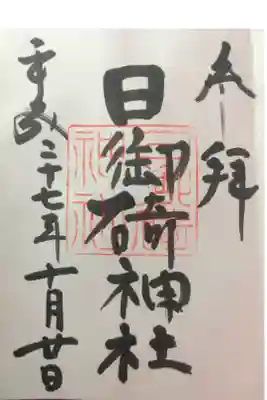 奉拝
日御碕神社
平成二十七年十月廿日